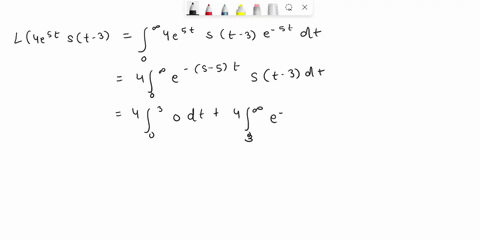 L(4e^{5t} s(t-3) = ∫_0^∞ 4e^{5t} s(t-3) e^{-st} dt
= 4∫_0^∞ e^{-(s-5)t} s(t-3) dt
= 4∫_0^3 0 dt + 4∫_3^∞ e^-